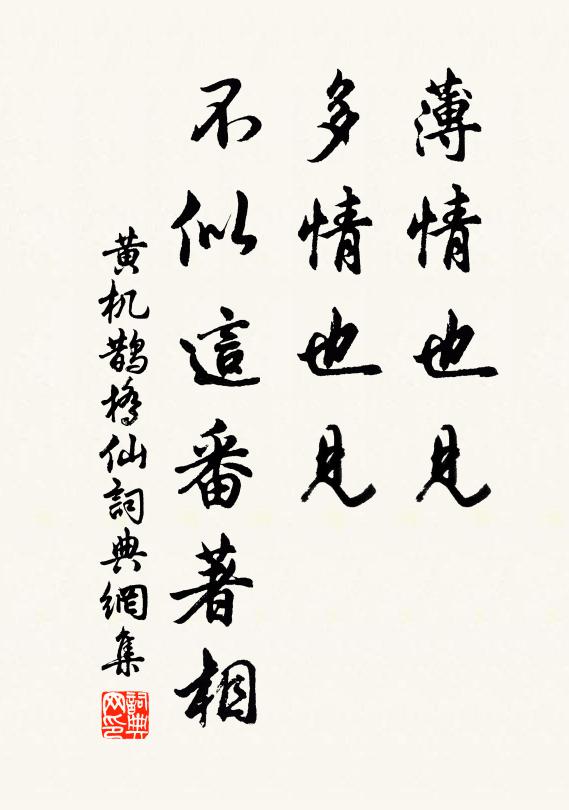 薄情也見
多情也見
不似這番著相
黄机鹊橋仙詞典網集
詞典网印